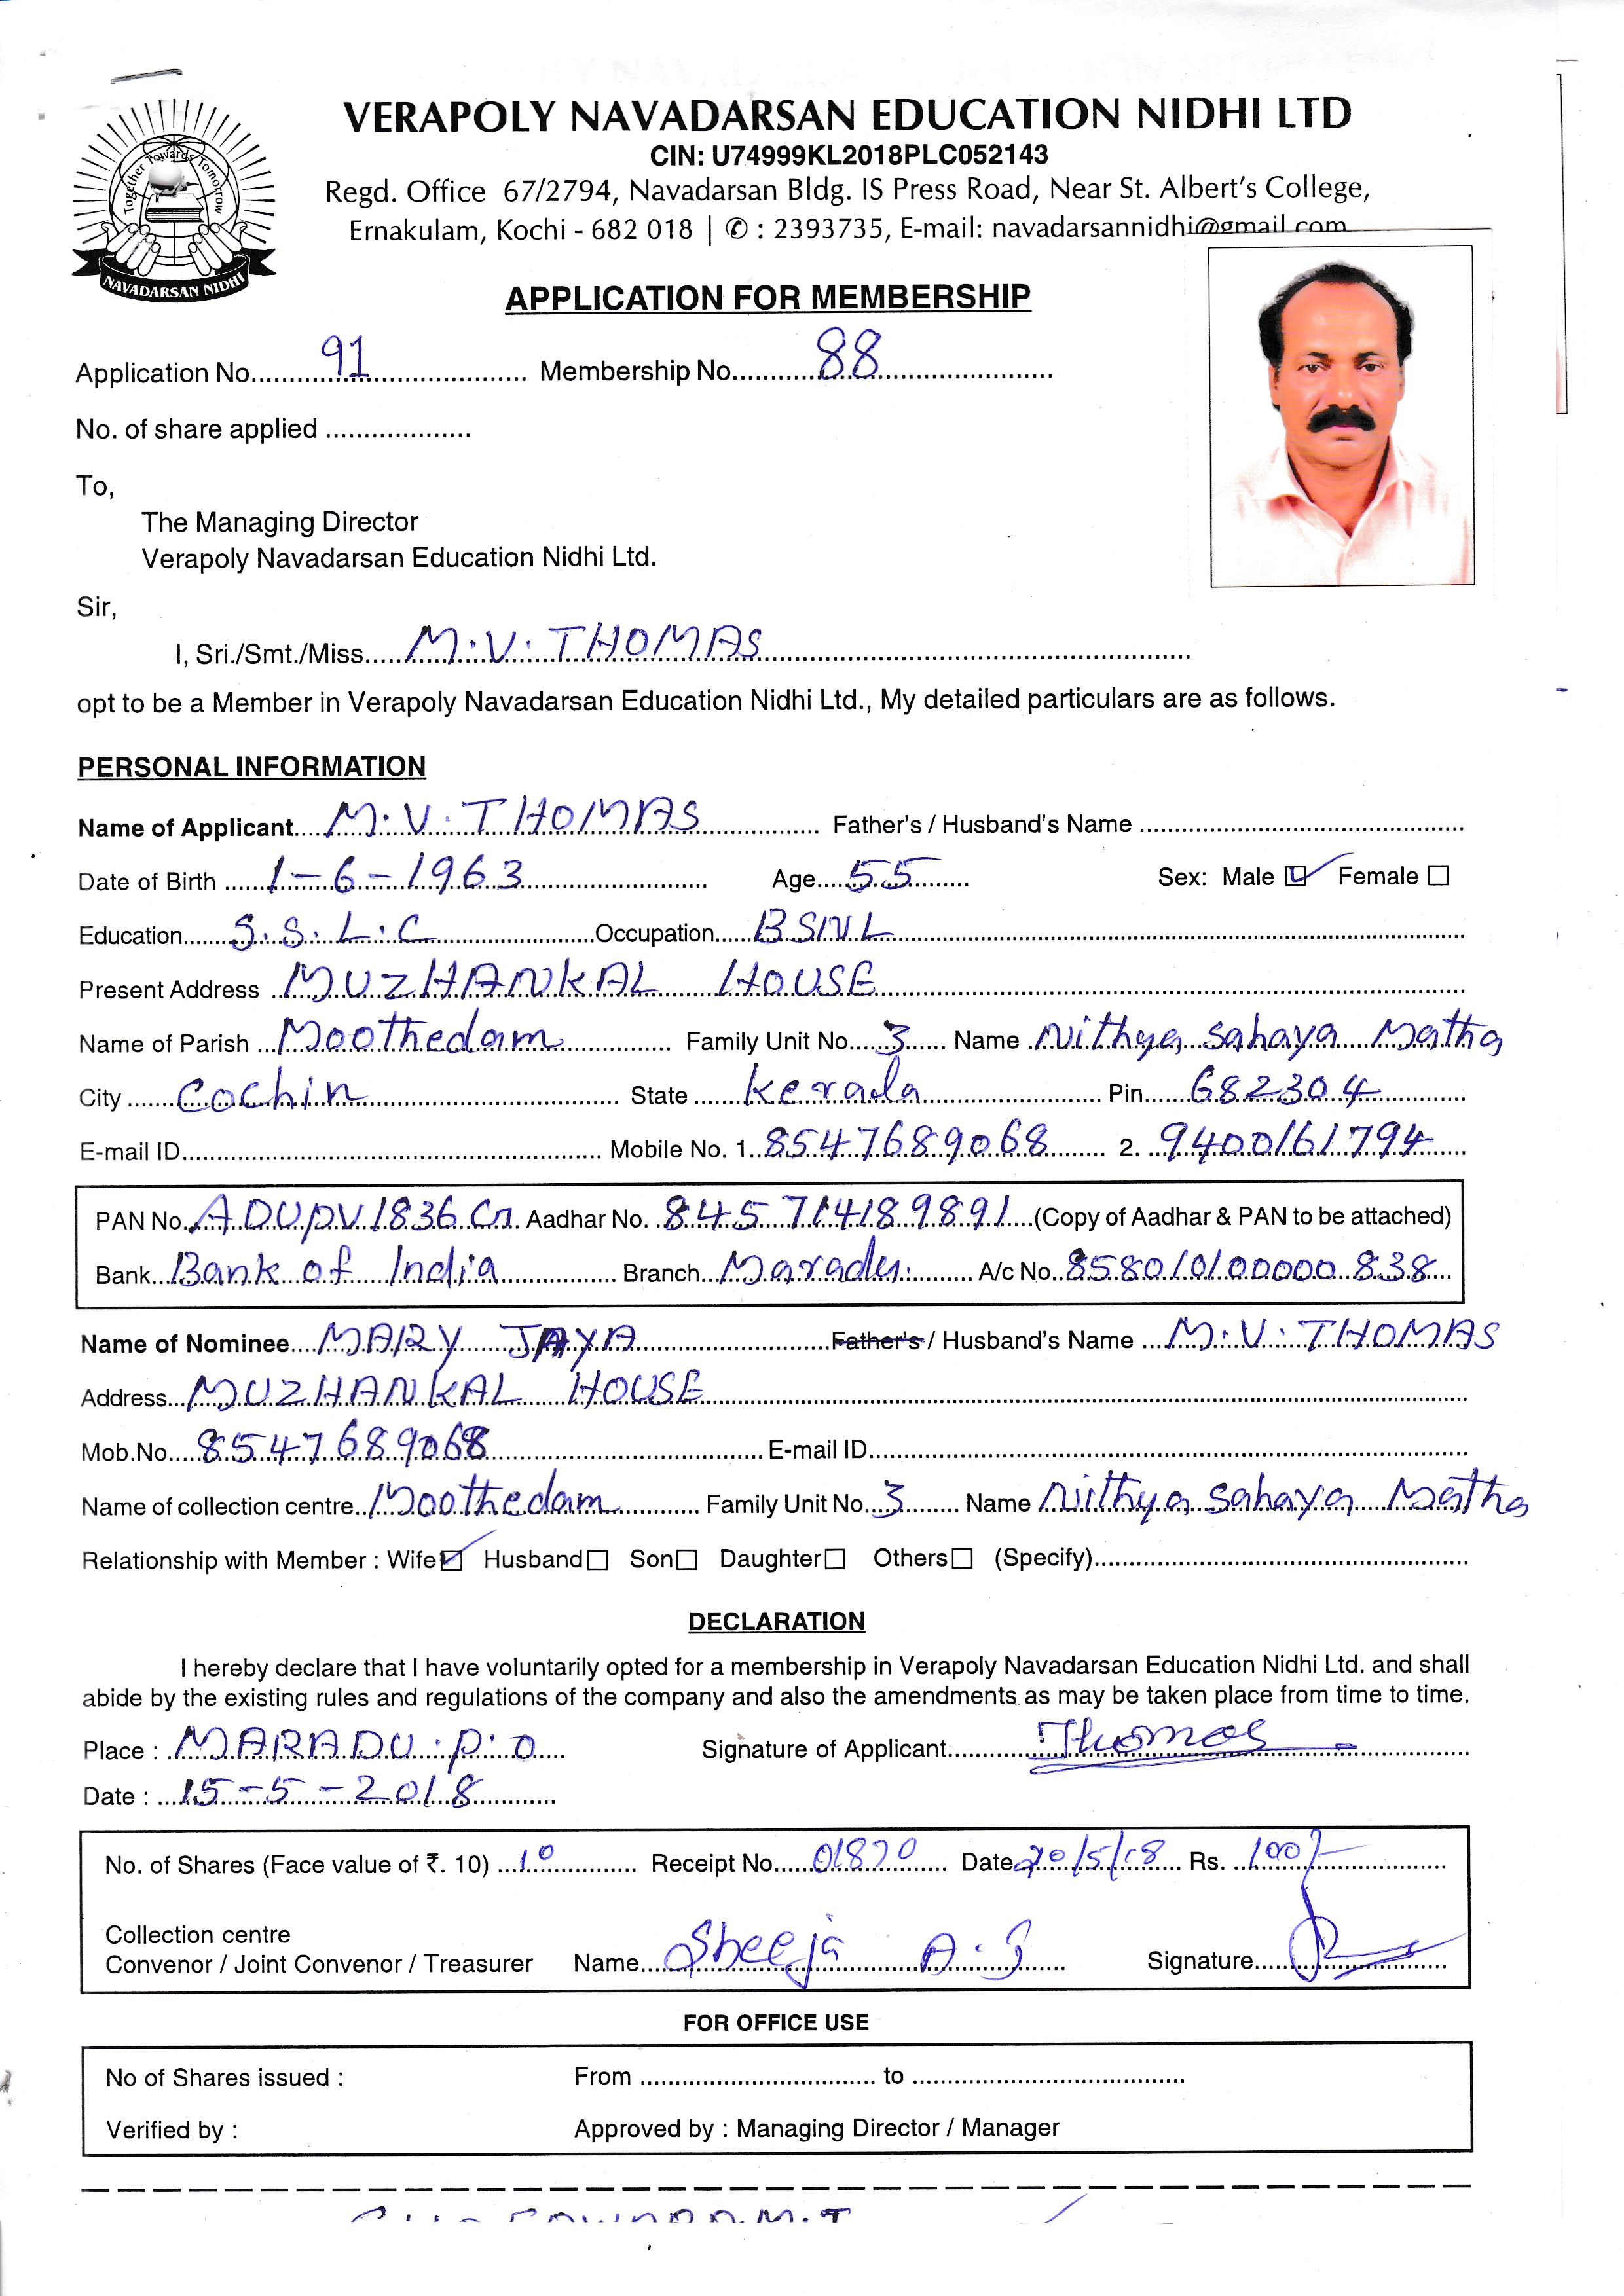 Together Towards Tomorrow
NAVADARSAN NIDHI
VERAPOLY NAVADARSAN EDUCATION NIDHI LTD
CIN: U74999KL2018PLC052143
Regd. Office 67/2794, Navadarsan Bldg. IS Press Road, Near St. Albert's College,
Ernakulam, Kochi - 682 018 | ✆ : 2393735, E-mail: navadarsannidhi@gmail.com
APPLICATION FOR MEMBERSHIP
Application No. 91 Membership No. 88
No. of share applied
To,
The Managing Director
Verapoly Navadarsan Education Nidhi Ltd.
Sir,
I, Sri./Smt./Miss M.V. THOMAS
opt to be a Member in Verapoly Navadarsan Education Nidhi Ltd., My detailed particulars are as follows.
PERSONAL INFORMATION
Name of Applicant M.V. THOMAS Father's / Husband's Name
Date of Birth 1-6-1963 Age 55 Sex: Male ☑ Female ☐
Education S.S.L.C Occupation BSNL
Present Address MUZHANKAL HOUSE
Name of Parish Moothedam Family Unit No. 3 Name Nithya sahaya Matha
City Cochin State Kerala Pin 682304
E-mail ID Mobile No. 1. 8547689068 2. 9400161794
PAN No. ADUPV1836G Aadhar No. 845714189891 (Copy of Aadhar & PAN to be attached)
Bank Bank of India Branch Maradu A/c No. 858010100000838
Name of Nominee MARY JAYA Father's / Husband's Name M.V. THOMAS
Address MUZHANKAL HOUSE
Mob.No. 8547689068 E-mail ID
Name of collection centre Moothedam Family Unit No. 3 Name Nithya sahaya Matha
Relationship with Member : Wife ☑ Husband ☐ Son ☐ Daughter ☐ Others ☐ (Specify)
DECLARATION
I hereby declare that I have voluntarily opted for a membership in Verapoly Navadarsan Education Nidhi Ltd. and shall
abide by the existing rules and regulations of the company and also the amendments as may be taken place from time to time.
Place : MARADU.P.O Signature of Applicant Thomas
Date : 15-5-2018
No. of Shares (Face value of ₹. 10) 10 Receipt No. 01870 Date 20/5/18 Rs. 100/-
Collection centre
Convenor / Joint Convenor / Treasurer Name Sheeja A.S Signature
FOR OFFICE USE
No of Shares issued : From to
Verified by : Approved by : Managing Director / Manager